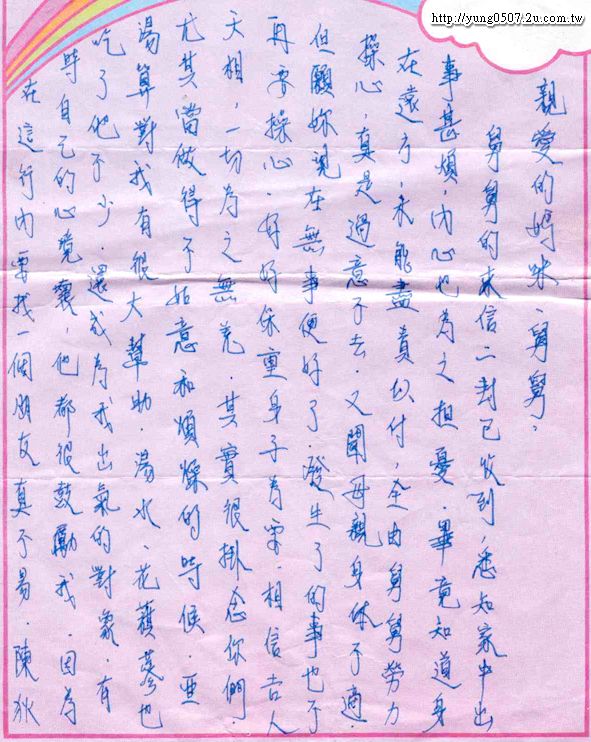 http://yung0507.2u.com.tw
親愛的媽咪、舅舅，
舅舅的來信二封已收到，悉知家中出
事甚煩，內心也為之担憂．畢竟知道身
在遠方，未能盡責以付，全由舅舅勞力
操心，真是過意不去．又聞母親身体不適．
但願妳現在無事便好了．發生了的事也不
再要操心．好好保重身子為要．相信吉人
天相，一切為之無羌．其實很掛念你們．
尤其當做得不如意和煩燥的時候．亜
湯算對我有很大幫助．湯水、花蔘也
吃了他不少．還成為我出氣的對象．有
時自己的心境壞，他都很鼓勵我．因為
在這行內要找一個朋友真不易．陳狄